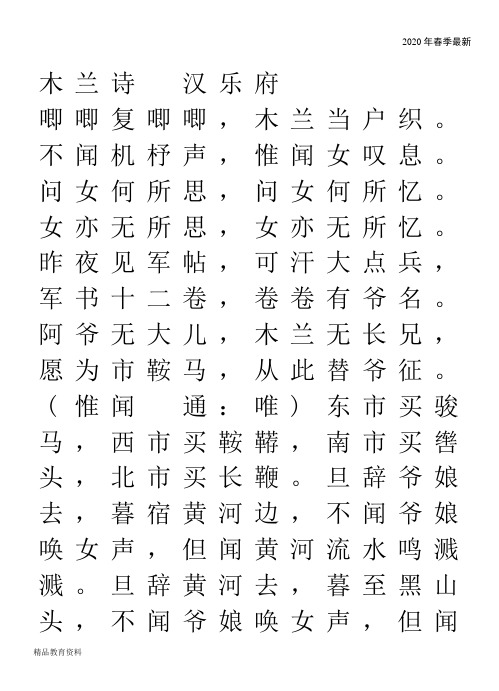 2020年春季最新
木兰诗 汉乐府
唧唧复唧唧，木兰当户织。
不闻机杼声，惟闻女叹息。
问女何所思，问女何所忆。
女亦无所思，女亦无所忆。
昨夜见军帖，可汗大点兵，
军书十二卷，卷卷有爷名。
阿爷无大儿，木兰无长兄，
愿为市鞍马，从此替爷征。
(惟闻 通：唯)东市买骏
马，西市买鞍鞯，南市买辔
头，北市买长鞭。旦辞爷娘
去，暮宿黄河边，不闻爷娘
唤女声，但闻黄河流水鸣溅
溅。旦辞黄河去，暮至黑山
头，不闻爷娘唤女声，但闻
精品教育资料